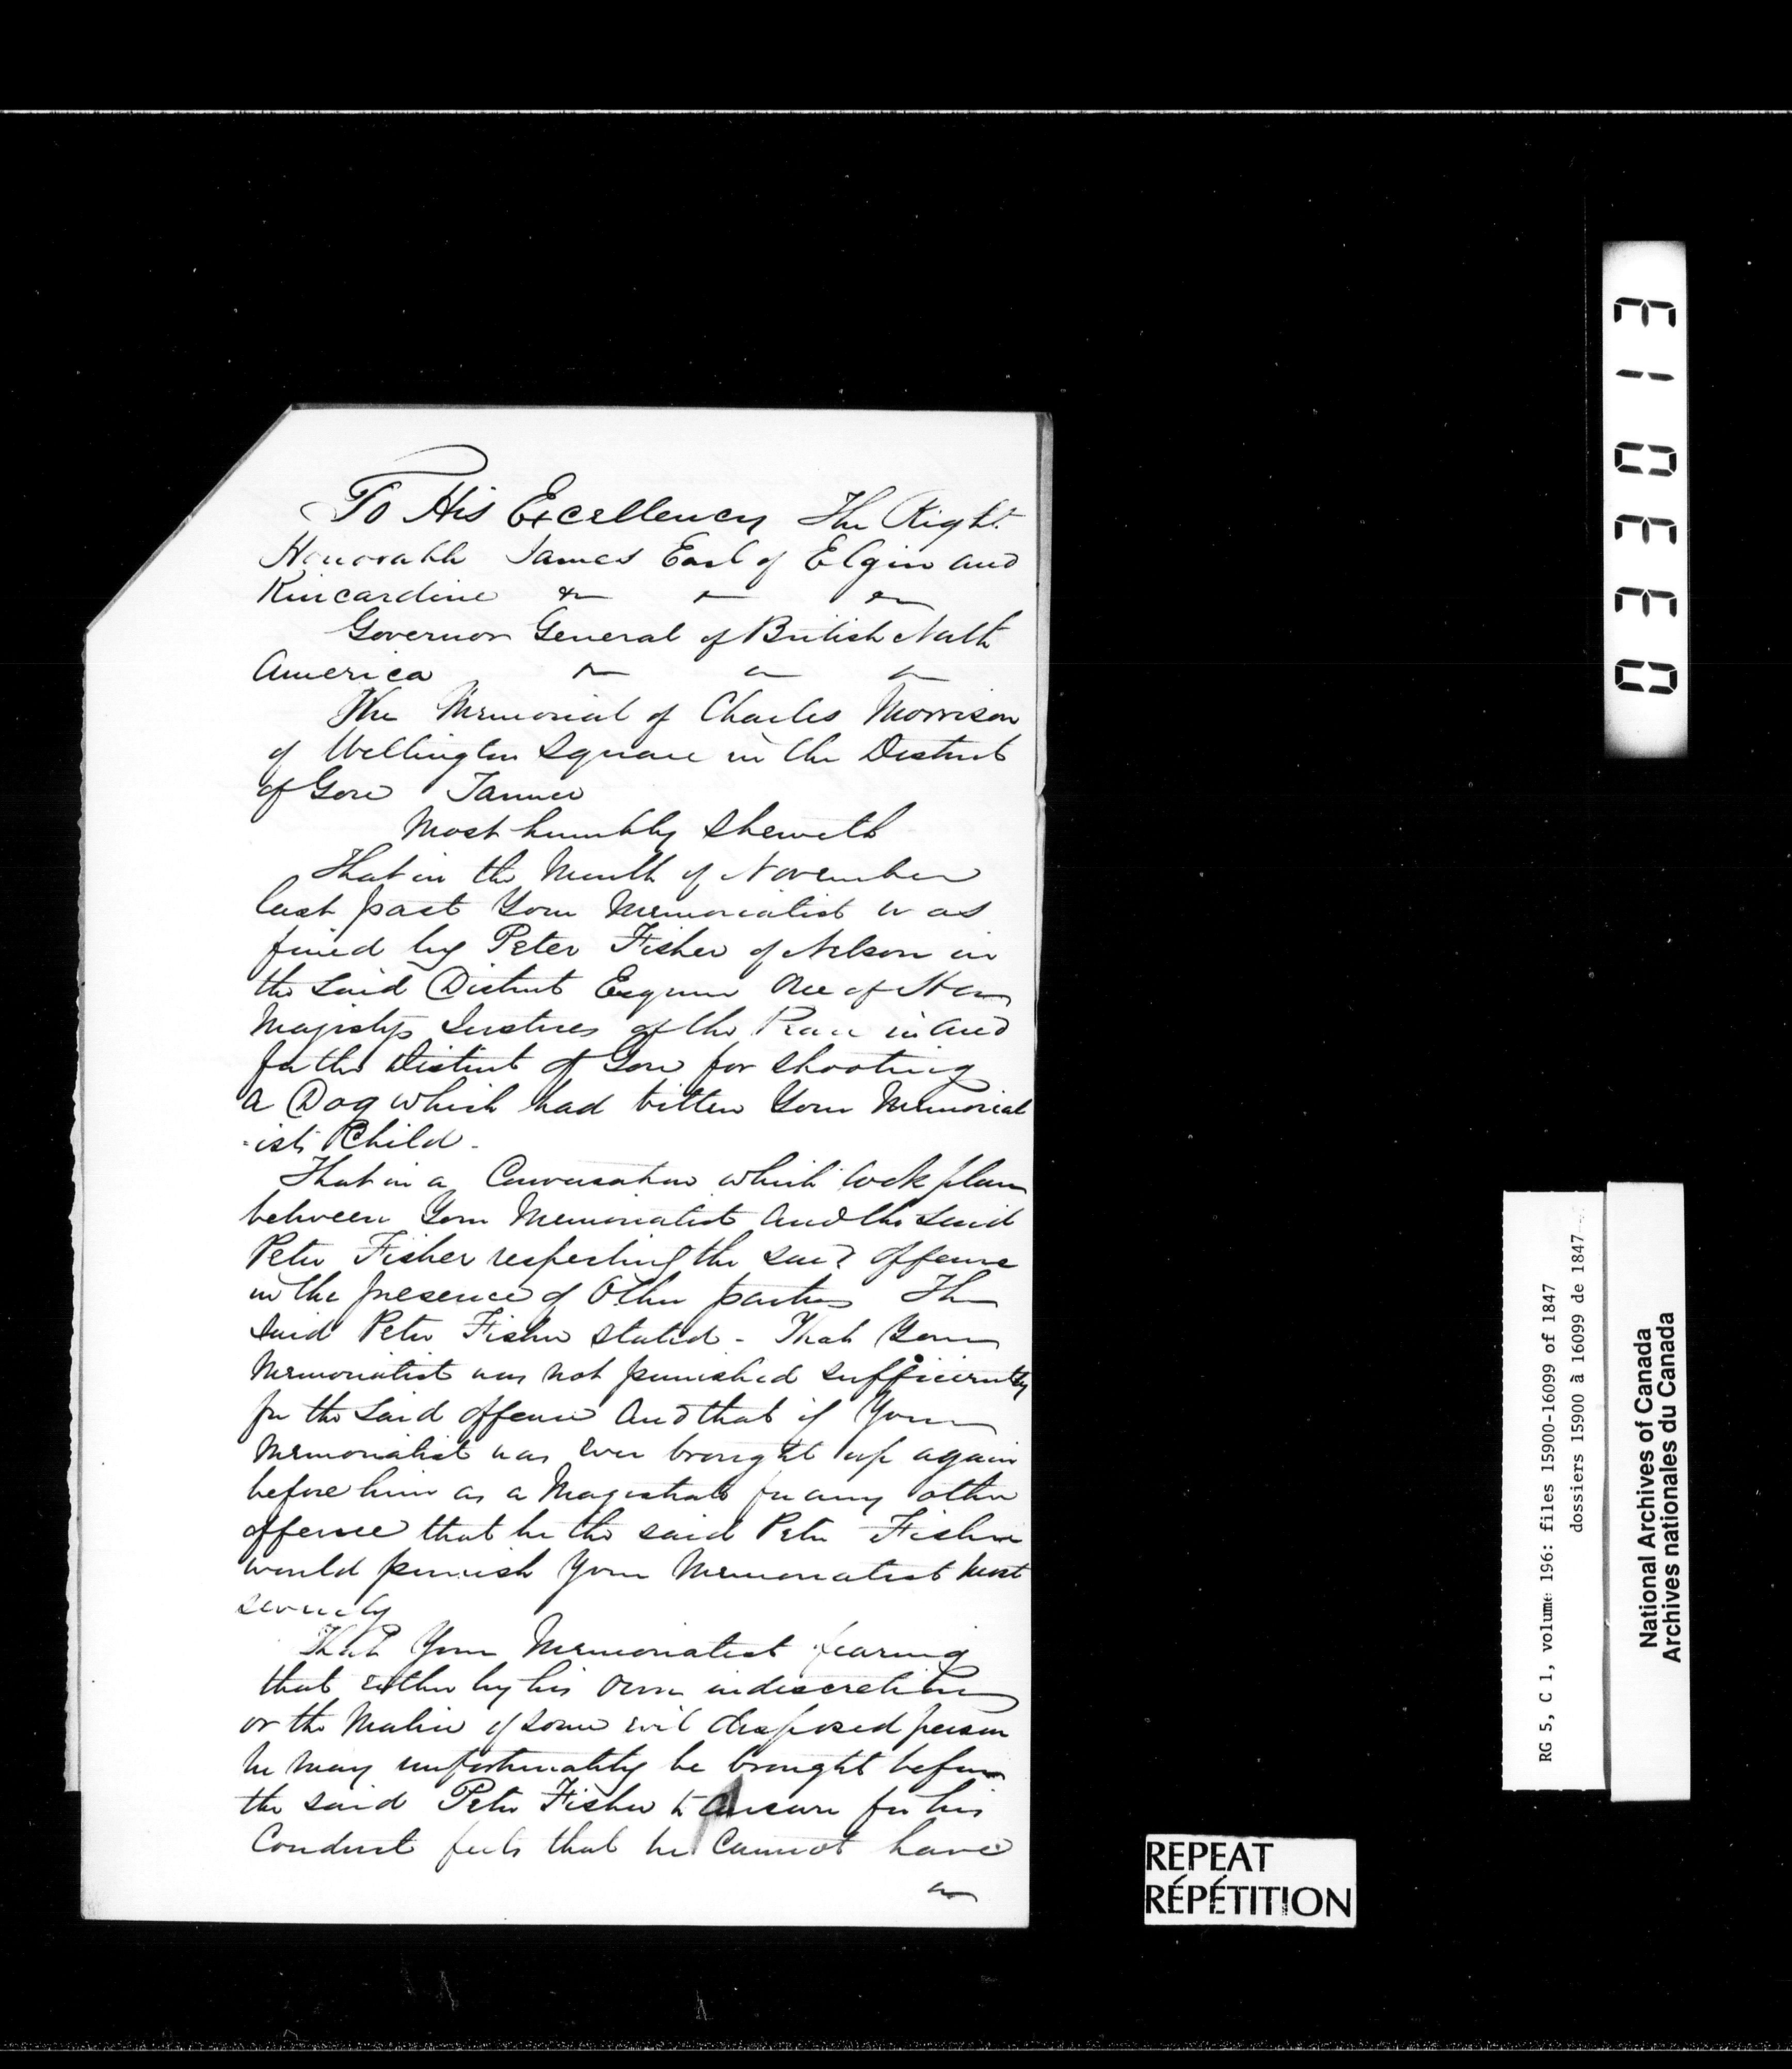 To His Excellency The Right
Honorable James Earl of Elgin and
Kincardine &c &c &c
Governor General of British North
America &c &c &c
The Memorial of Charles Morrison
of Wellington Square in the District
of Gore Tanner
Most humbly Sheweth
That in the Month of November
last past Your Memorialist was
fined by Peter Fisher of Nelson in
the said District Esquire One of Her
Majestys Justices of the Peace in and
for the District of Gore for shooting
a Dog which had bitten Your Memorial
-ists Child.
That in a Conversation which took place
between Your Memorialist and the said
Peter Fisher respecting the said offence
in the presence of Other parties The
said Peter Fisher stated - That Your
Memorialist was not punished sufficiently
for the said offence And that if Your
Memorialist was ever brought up again
before him as a Magistrate for any other
offence that he the said Peter Fisher
would punish Your Memorialist most
severely
That Your Memorialist fearing
that either by his own indiscretion
or the Malice of some evil disposed person
he may unfortunately be brought before
the said Peter Fisher to answer for his
Conduct feels that he cannot have
an
REPEAT
RÉPÉTITION
RG 5, C 1, volume 196: files 15900-16099 of 1847
dossiers 15900 à 16099 de 1847
National Archives of Canada
Archives nationales du Canada
033013